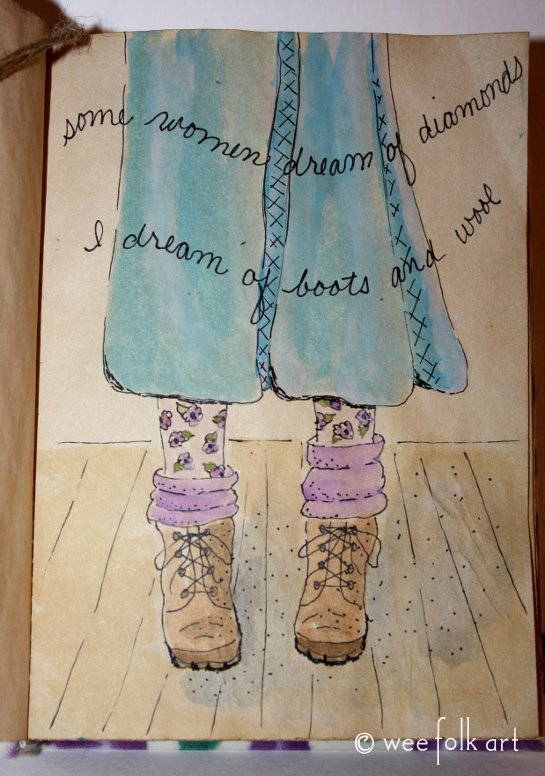 some women dream of diamonds
I dream of boots and wool
© wee folk art